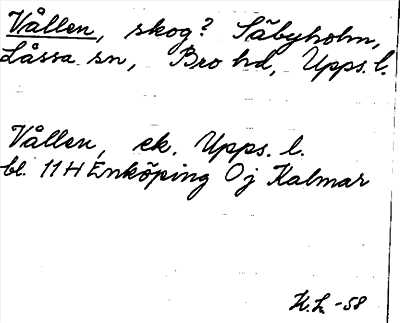 Vållen, skog? Säbyholm,
Låssa sn, Bro hd, Upps. l.
Vållen, ek. Upps. l.
bl. 11 H Enköping Oj Kalmar
K.L. -58